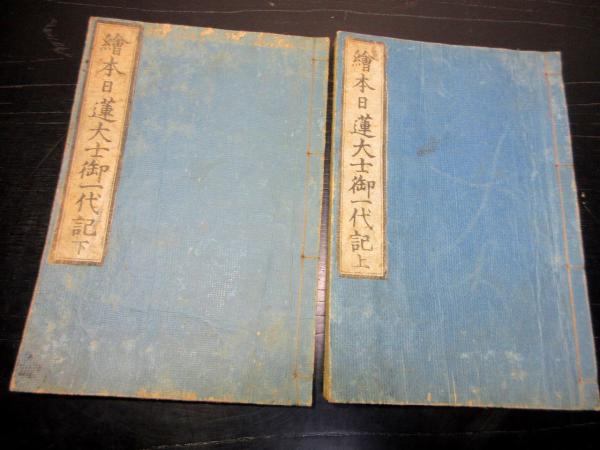 繪本日蓮大士御一代記上
繪本日蓮大士御一代記下